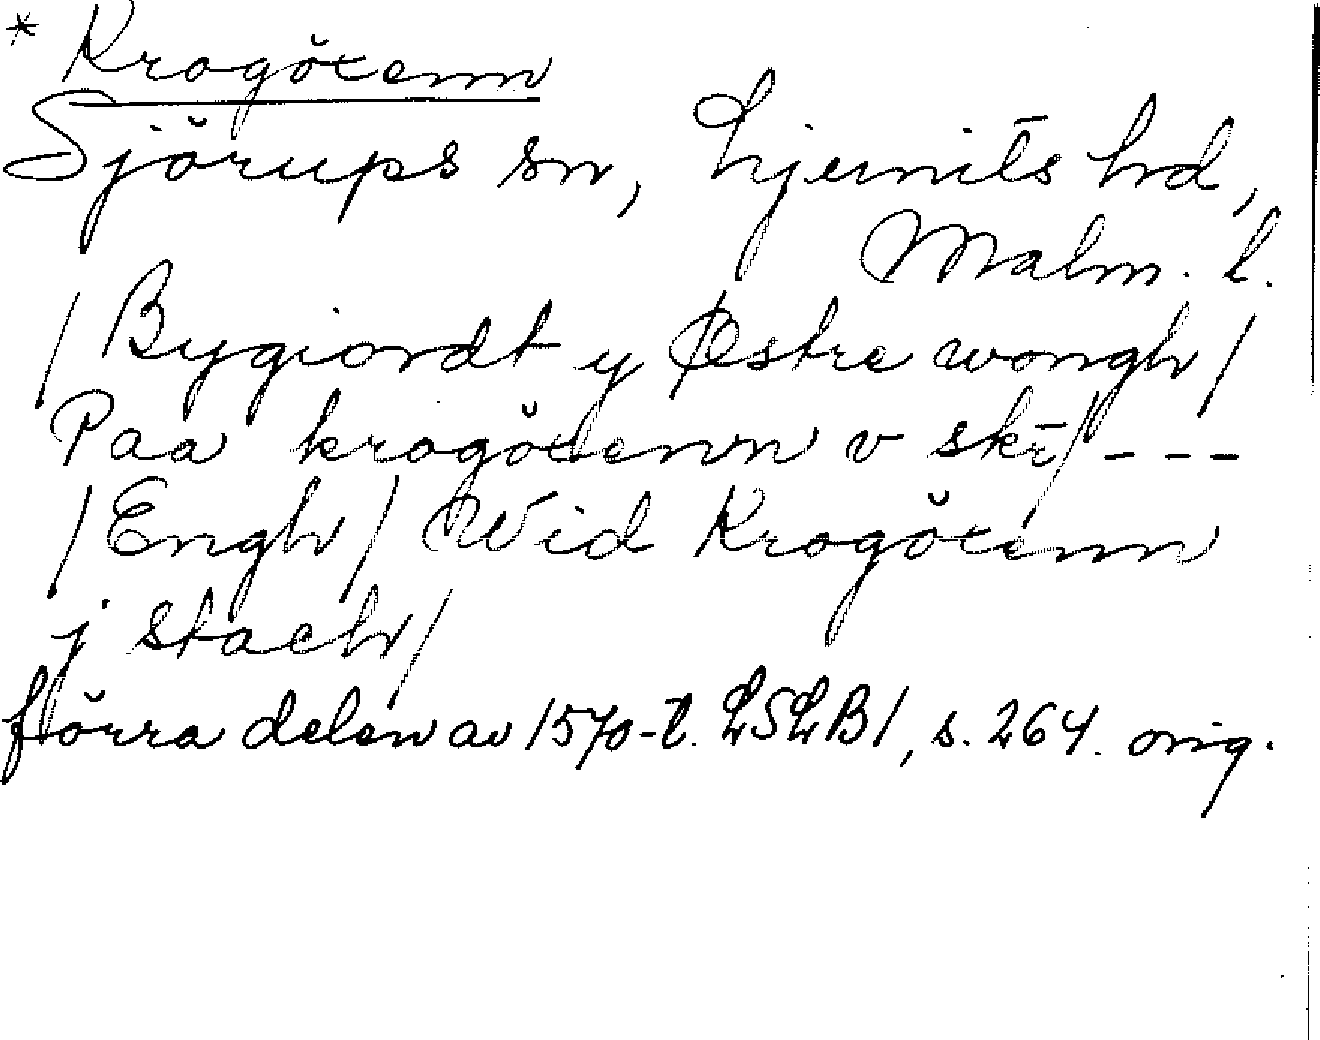 * Krogöxenn
Sjörups sn, Ljunits hd,
Malm. l.
/ Bygiordt y Østre wongh /
Paa krogöxenn v skr̄ / - - -
/ Engh / Wid Krogöxenn
j stach /
förra delen av 1570-t. LSLB1, s. 264. orig.